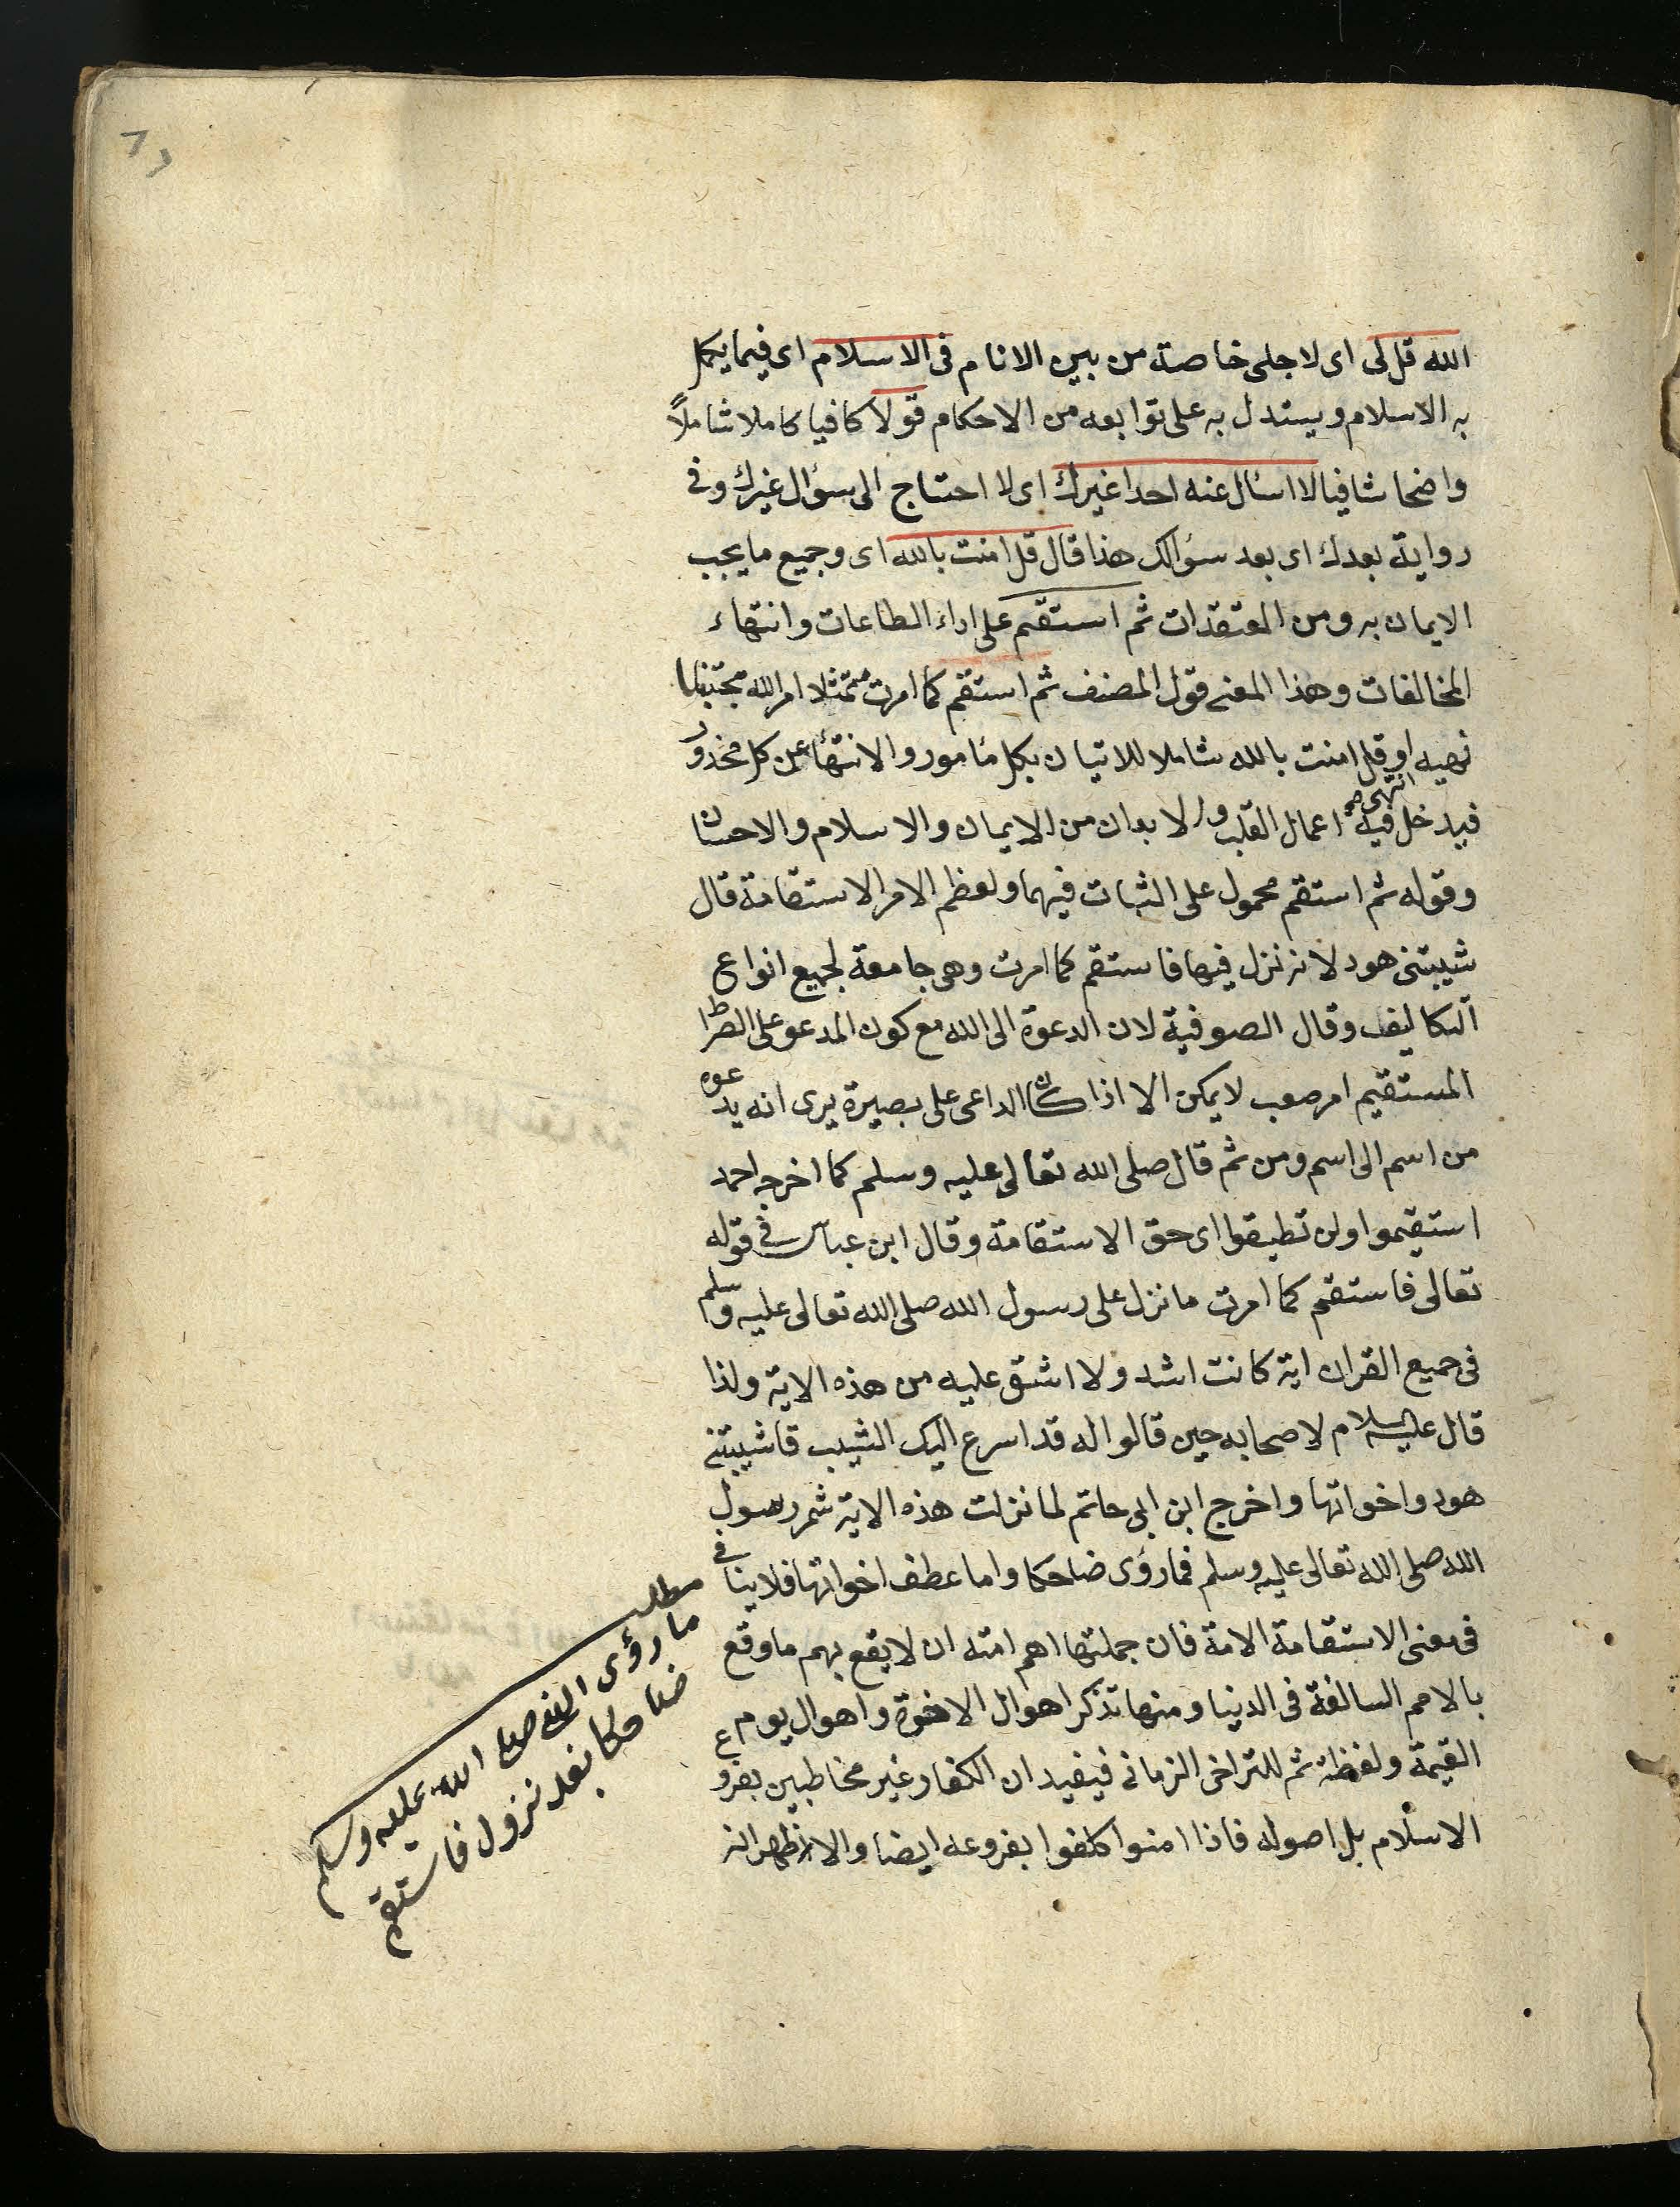 الله قل لى اى لاجلى خاصة من بين الانام فى الاسلام اى فيما يكمل
به الاسلام ويستدل به على توابعه من الاحكام قولا كافيا كاملا شاملاً
واضحا شافيا لا اسئال عنه احدا غيرك اى لا احتاج الى سؤال غيرك وفى
رواية بعدك اى بعد سؤالك هذا قال قل امنت بالله اى وجميع ما يجب
الايمان به ومن المعتقدات ثم استقم على اداء الطاعات وانتهاء
المخالفات وهذا المعنى قول المصنف ثم استقم كما امرت ممتثلا امر الله مجتنبا
نهيه او قل امنت بالله شاملا للاتيان بكل مأمور والانتهاء عن كل محذور
انتهى صح
فيدخل فيه اعمال القلب والابدان من الايمان والاسلام والاحسان
وقوله ثم استقم محمول على الثبات فيهما ولعظم الامر الاستقامة قال
شيبتنى هود لانه نزل فيها فاستقم كما امرت وهى جامعة لجميع انواع
التكاليف وقال الصوفية لان الدعوة الى الله مع كون المدعو على الصراط
المستقيم امر صعب لا يمكن الا اذا كان الداعى على بصيرة يرى انه يدعوه
من اسم الى اسم ومن ثم قال صلى الله تعالى عليه وسلم كما اخرجه احمد
استقيموا ولن تطيقوا اى حق الاستقامة وقال ابن عباس فى قوله
تعالى فاستقم كما امرت ما نزل على رسول الله صلى الله تعالى عليه وسلم
فى جميع القران اية كانت اشد ولا اشق عليه من هذه الاية ولذا
قال عليه السلام لاصحابه حين قالوا له قد اسرع اليك الشيب قا شيبتنى
هود واخواتها واخرج ابن ابى حاتم لما نزلت هذه الاية شمر رسول
الله صلى الله تعالى عليه وسلم فما رؤى ضاحكا واما عطف اخواتها فلا ينافى
فى معنى الاستقامة الامة فان جملتها اهم امته ان لا يقع بهم ما وقع
بالامم السالفة فى الدينا ومنها تذكر اهوال الاخوة واهوال يوم
القيمة ولفظة ثم للتراخى الزمانى فيفيد ان الكفار غير مخاطبين بفروع
الاسلام بل اصوله فاذا امنوا كلفوا بفروعه ايضا والاظهر انه
مطلب
ما رؤى النبى صلى الله عليه وسلم
ضاحكا بعد نزول فاستقم